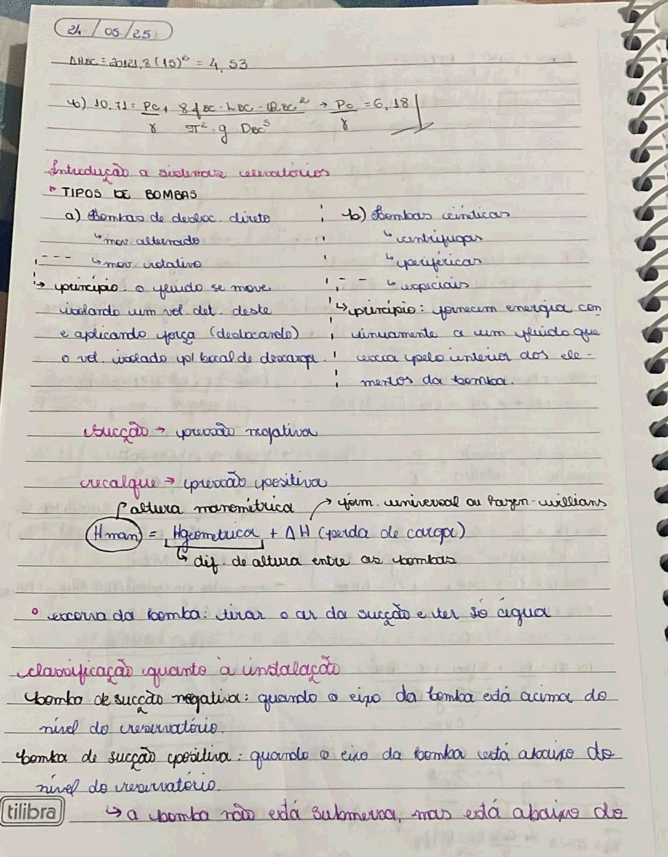 24 / 05 / 25
ΔHBC = 20121,8 (15)² = 4,53
b) 10,71 = PC/γ + 8 fBC · LBC · QBC² / π² · g DBC⁵ → PC/γ = 6,18
Introdução a sistemas elevatórios
TIPOS DE BOMBAS
a) Bombas de desloc. direto
↳ mov. alternado
↳ mov. rotativo
↳ princípio: o fluido se move
isolando um vol. det. deste
e aplicando força (deslocando)
o vol. isolado p/ bocal de descarga.
b) Bombas cinéticas
↳ centrífugas
↳ periféricas
↳ especiais
↳ princípio: fornecem energia con
tinuamente a um fluido que
escoa pelo interior dos ele-
mentos da bomba.
sucção → pressão negativa
recalque → pressão positiva
altura manométrica → fórm. universal ou hazen-willians
Hman = Hgeométrica + ΔH (perda de carga)
↳ dif. de altura entre as bombas
° escorva da bomba: tirar o ar da sucção e ter só água
classificação quanto à instalação
bomba de sucção negativa: quando o eixo da bomba está acima do
nível do reservatório.
bomba de sucção positiva: quando o eixo da bomba está abaixo do
nível do reservatório.
↳ a bomba não está submersa, mas está abaixo do
tilibra